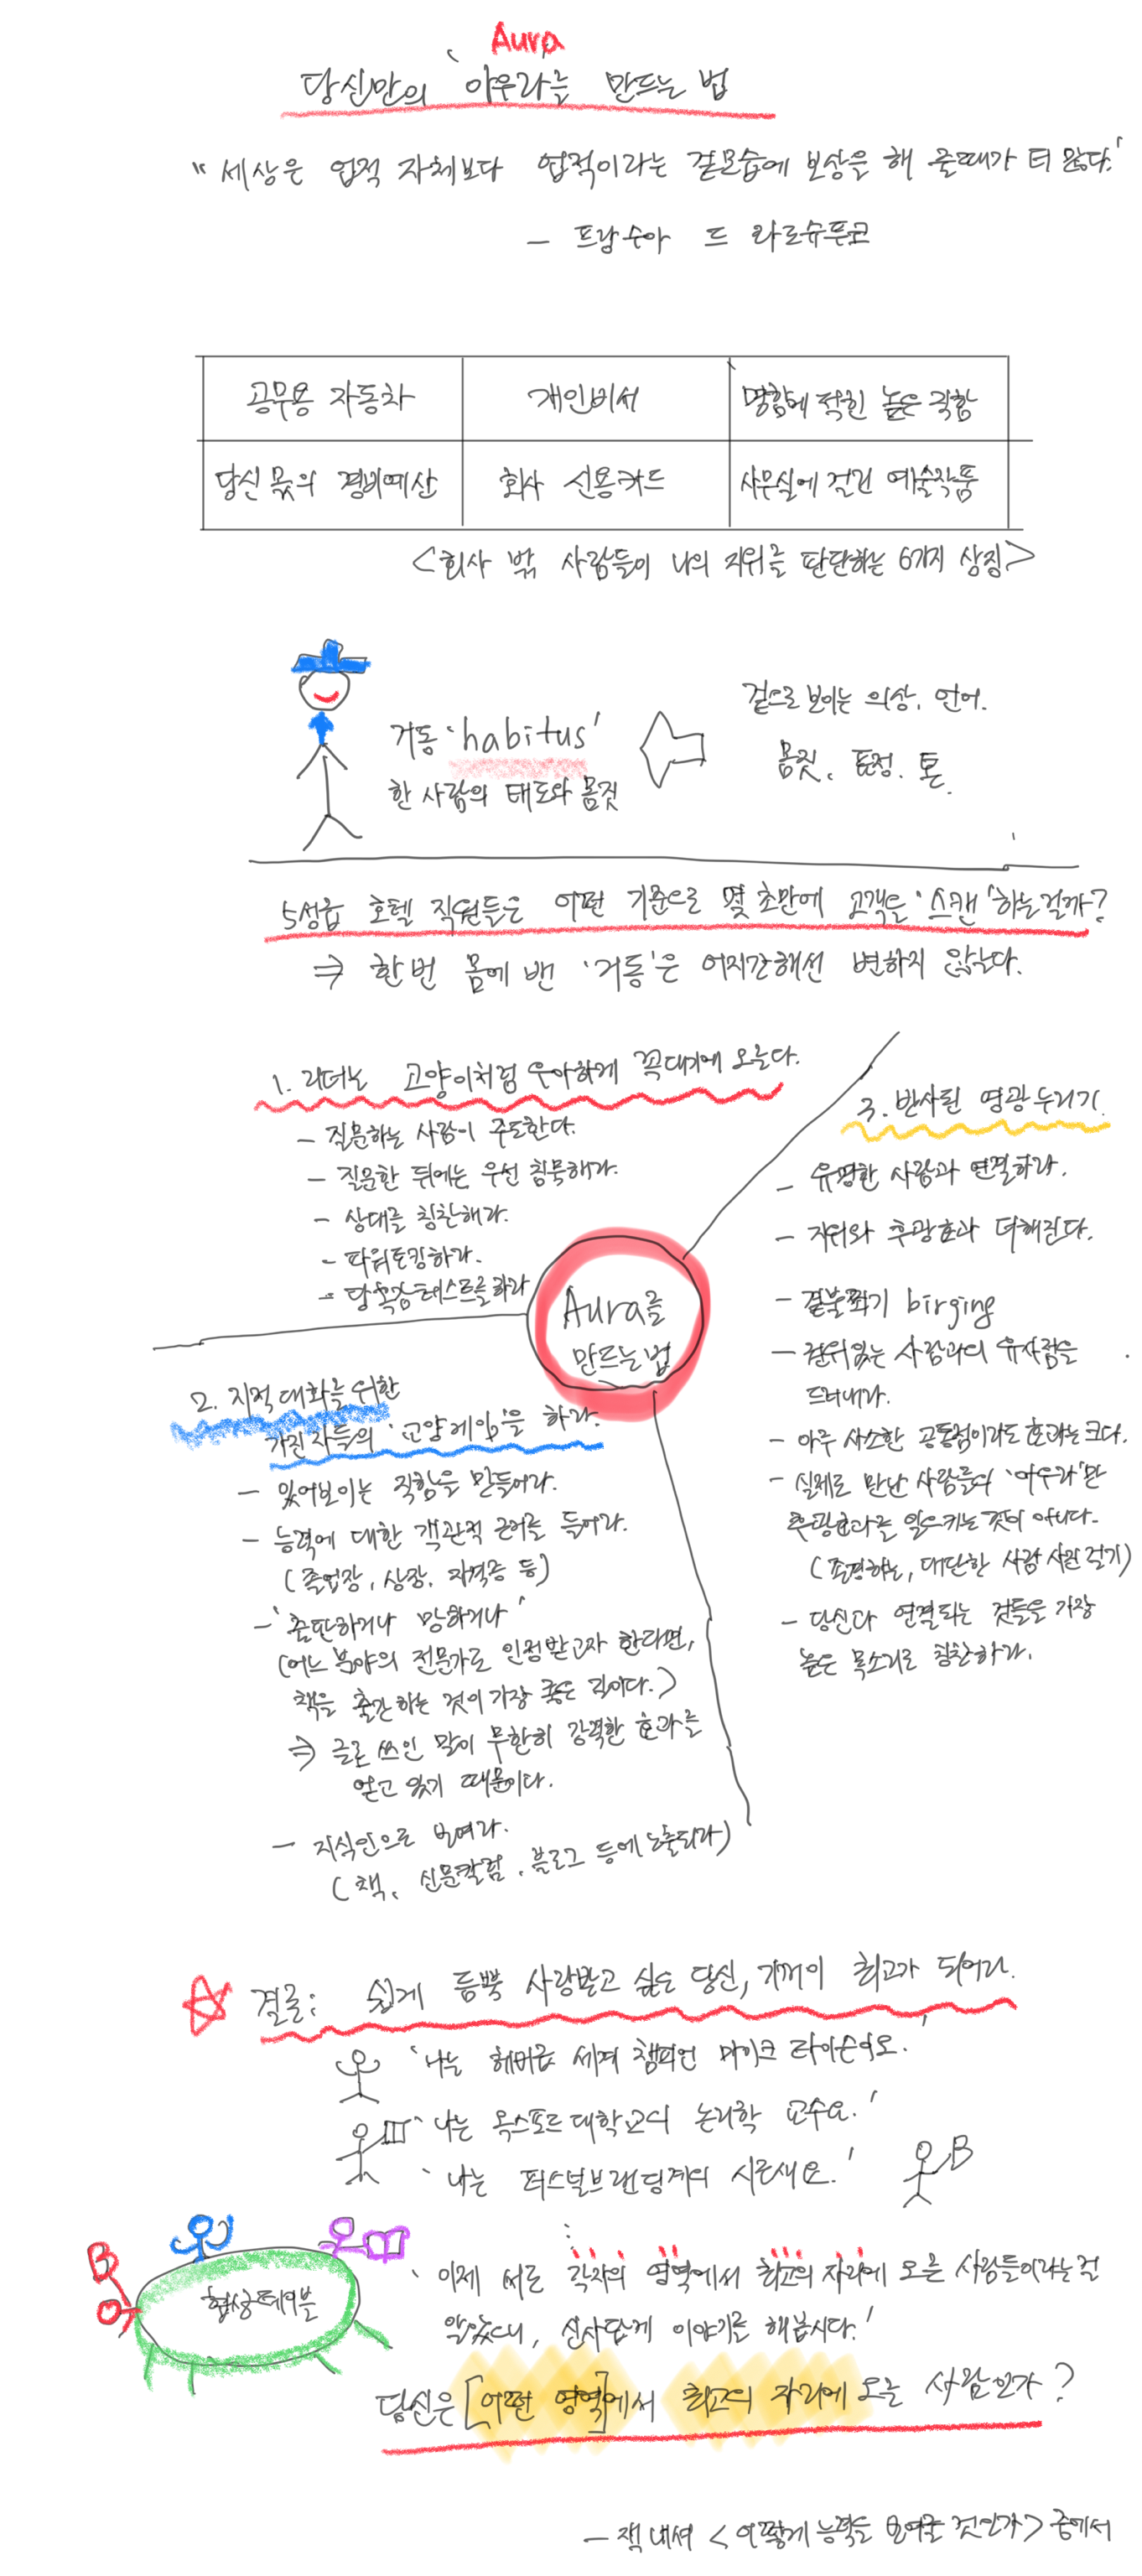 Aura
당신만의 '아우라'를 만드는 법
"세상은 업적 자체보다 업적이라는 겉모습에 보상을 해 줄때가 더 많다."
- 프랑수아 드 라로슈푸코
공무용 자동차 개인비서 명함에 적힌 높은 직함
당신 몫의 경비예산 회사 신용카드 사무실에 걸린 예술작품
<회사 밖 사람들이 나의 지위를 판단하는 6가지 상징>
거동 'habitus'
한 사람의 태도와 몸짓
겉으로 보이는 의상, 언어.
몸짓, 표정, 톤.
5성급 호텔 직원들은 어떤 기준으로 몇 초만에 고객을 '스캔'하는걸까?
⇒ 한번 몸에 밴 '거동'은 어지간해선 변하지 않는다.
1. 리더는 고양이처럼 우아하게 꼭대기에 오른다.
- 질문하는 사람이 주도한다.
- 질문한 뒤에는 우선 침묵해라.
- 상대를 칭찬해라.
- 파워토킹하라.
- 테스트를 하라
Aura를
만드는 법
2. 지적 대화를 위한
가진 자들의 '교양게임'을 하라.
- 있어보이는 직함을 만들어라.
- 능력에 대한 객관적 근거를 들어라.
(졸업장, 상장, 자격증 등)
- '출판하거나 망하거나'
(어느 분야의 전문가로 인정받고자 한다면,
책을 출간하는 것이 가장 좋은 길이다.)
⇒ 글로 쓰인 말이 무한히 강력한 효과를
얻고 있기 때문이다.
- 지식인으로 보여라.
(책, 신문칼럼, 블로그 등에 노출되라)
3. 반사된 영광 누리기
- 유명한 사람과 연결하라.
- 지위와 후광효과 더해진다.
- 곁불쬐기 birging
- 권위있는 사람과의 유사점을
드러내라.
- 아주 사소한 공통점이라도 효과는 크다.
- 실제로 만난 사람들의 '아우라'만
후광효과를 일으키는 것이 아니다.
(존경하는, 대단한 사람 사진 걸기)
- 당신과 연결되는 것들을 가장
높은 목소리로 칭찬하라.
결론: 쉽게 듬뿍 사랑받고 싶은 당신, 기꺼이 최고가 되어라.
'나는 헤비급 세계 챔피언 마이크 타이슨이오.'
'나는 옥스포드 대학교의 논리학 교수요.'
'나는 퍼스널브랜딩계의 시른새요.'
B
B
협상테이블
'이제 서로 각자의 영역에서 최고의 자리에 오른 사람들이라는 걸
알았으니, 신사답게 이야기를 해봅시다.'
당신은 [어떤 영역]에서 최고의 자리에 오른 사람인가?
- 잭 내셔 <어떻게 능력을 보여줄 것인가> 중에서